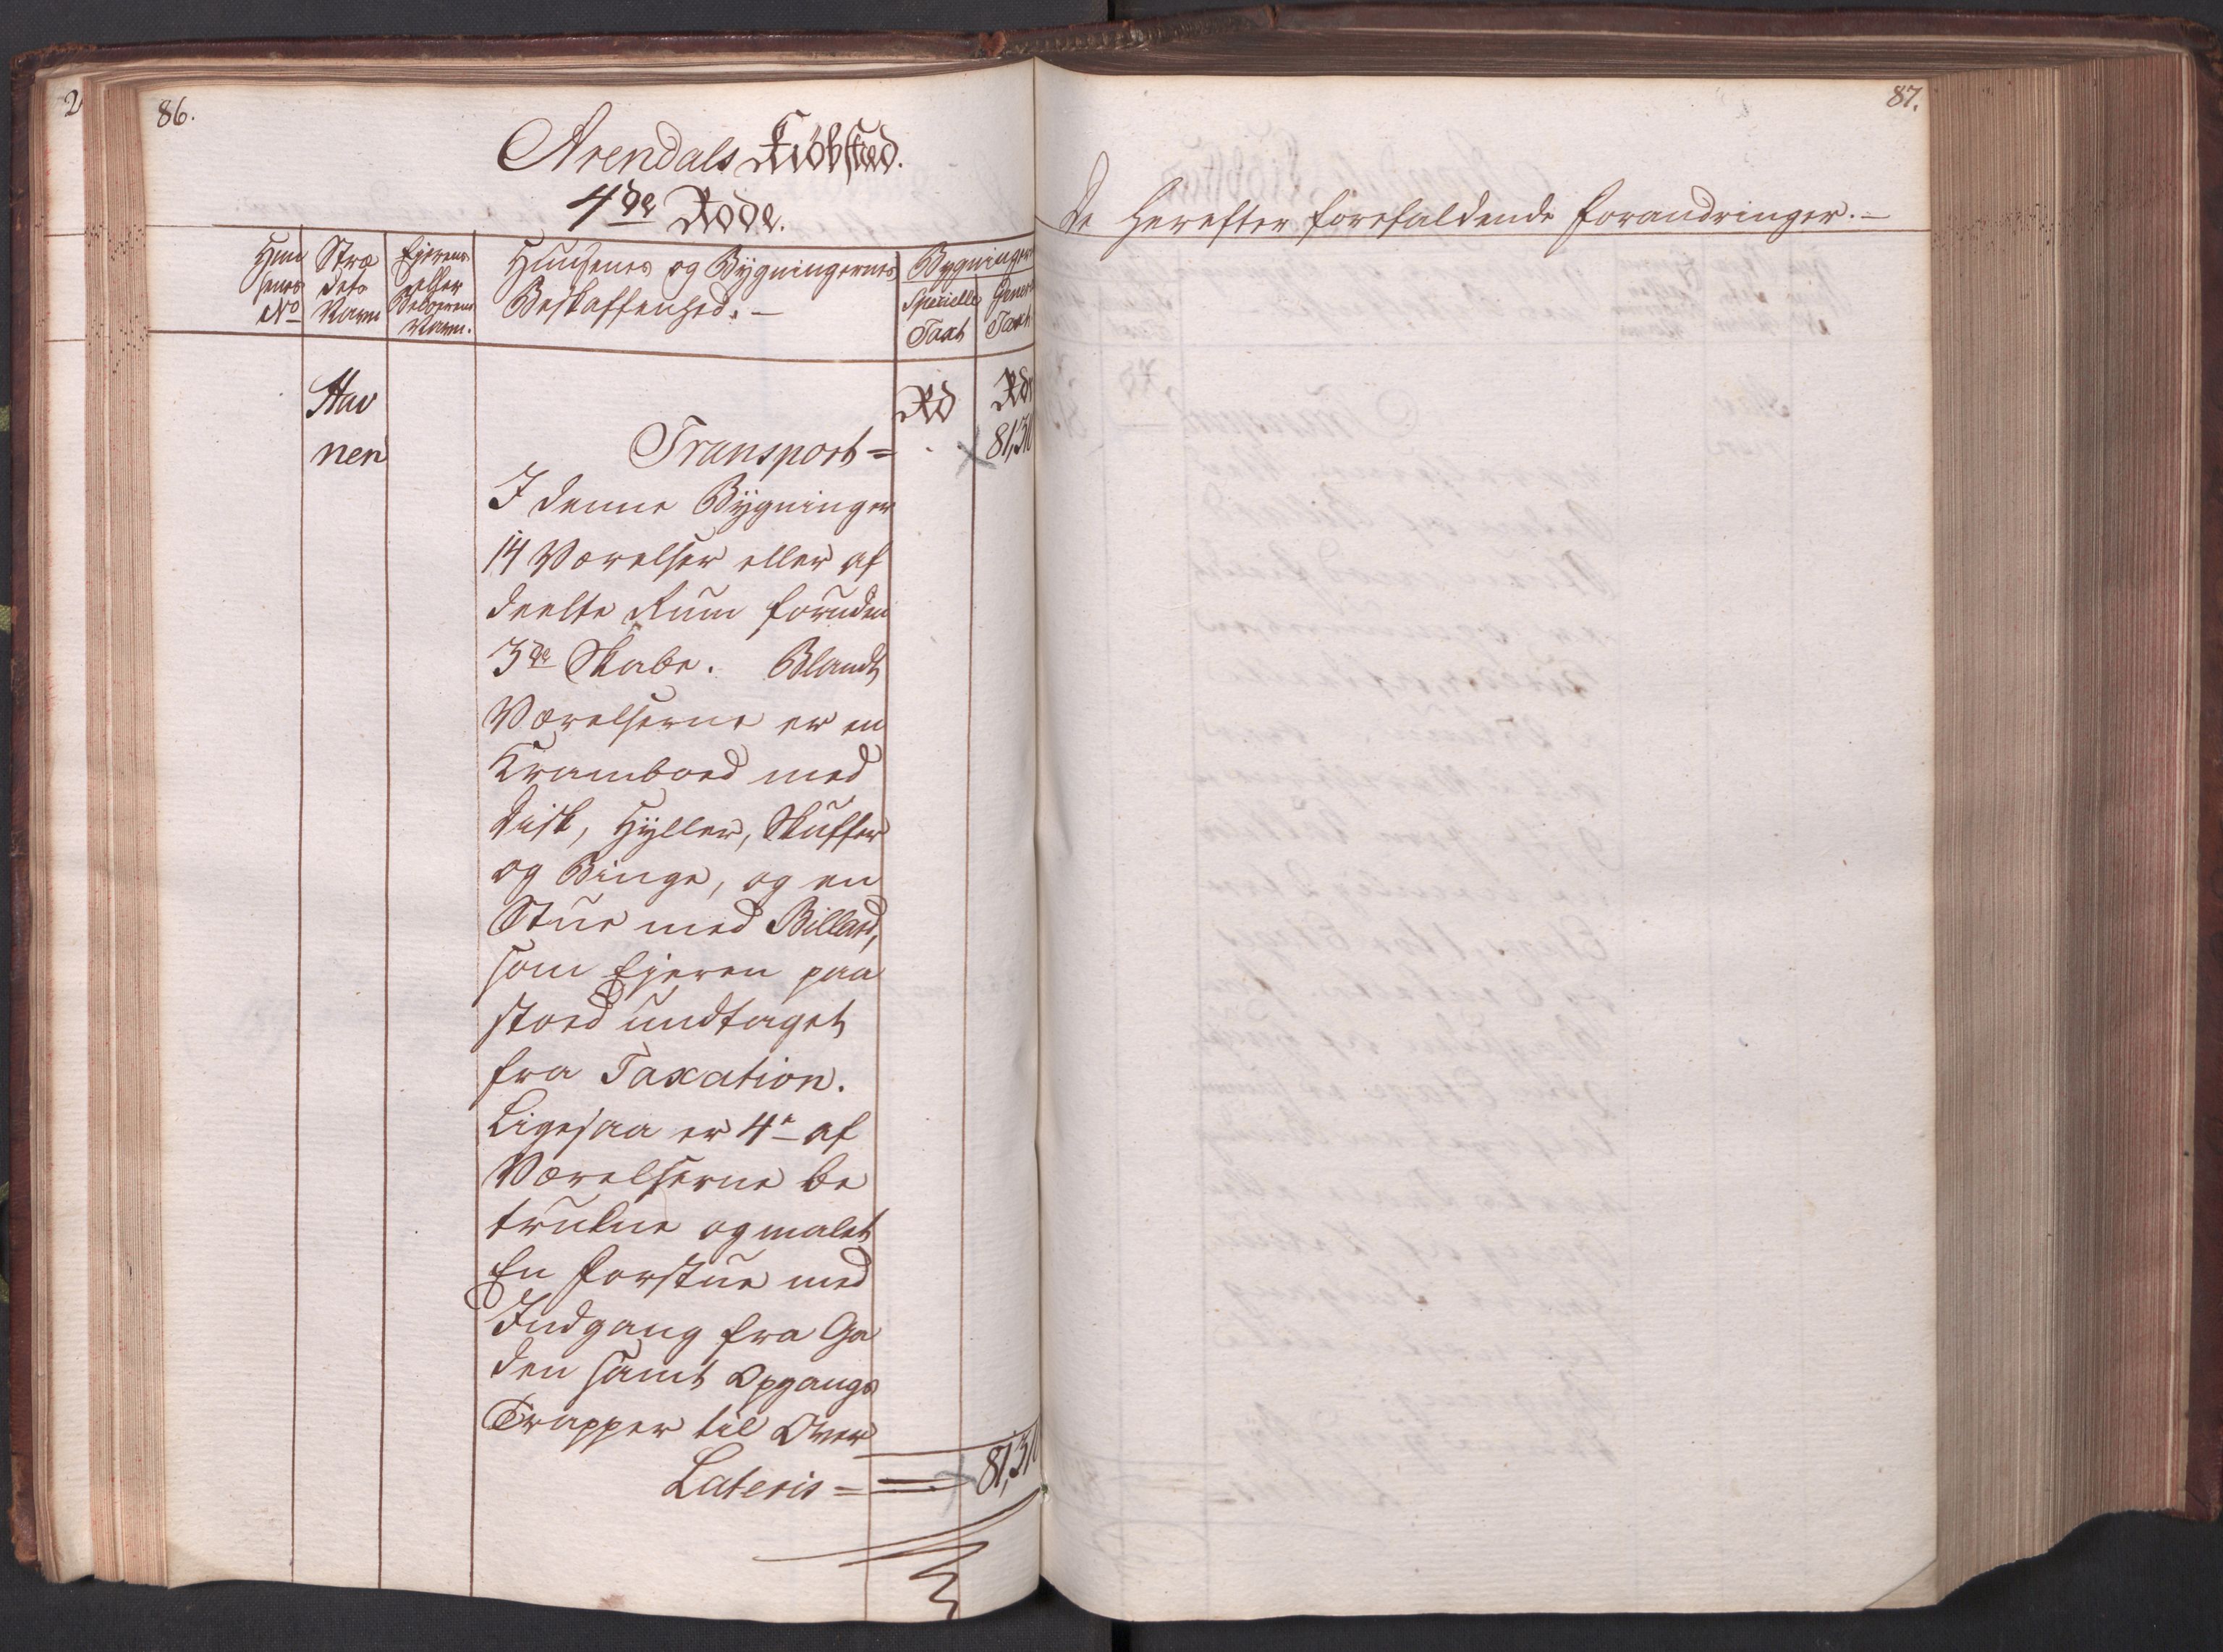 2
86.
Arendals Kiöbstæd.
4de Rode.
Huu
senes
No
Stræ
dets
Navn
Ejerens
eller
Beboerens
Navn.
Huusenes og Bÿgningernes
Beskaffenhed. –
Bygninger
Specielle
Taxt
Taxt
Hav
nen
Rd
Rdr
Transport =
81,310
I denne Bÿgninger
14 Værelser eller af
deelte Rum foruden
3de Skabe. Blandt
Værelserne er en
Kramboed med
Disk, Hÿller, Skuffer
og Binge, og en
Stue med Billard,
som Ejeren paa
stoed undtaget
fra Taxation.
Ligesaa er 4re af
Værelserne be
trukne og malet
En Forstue med
Indgang fra Ga
den samt Opgangs
Trapper til Over
Lateris =
81,310
87.
De Herefter forefaldende Forandringer. –